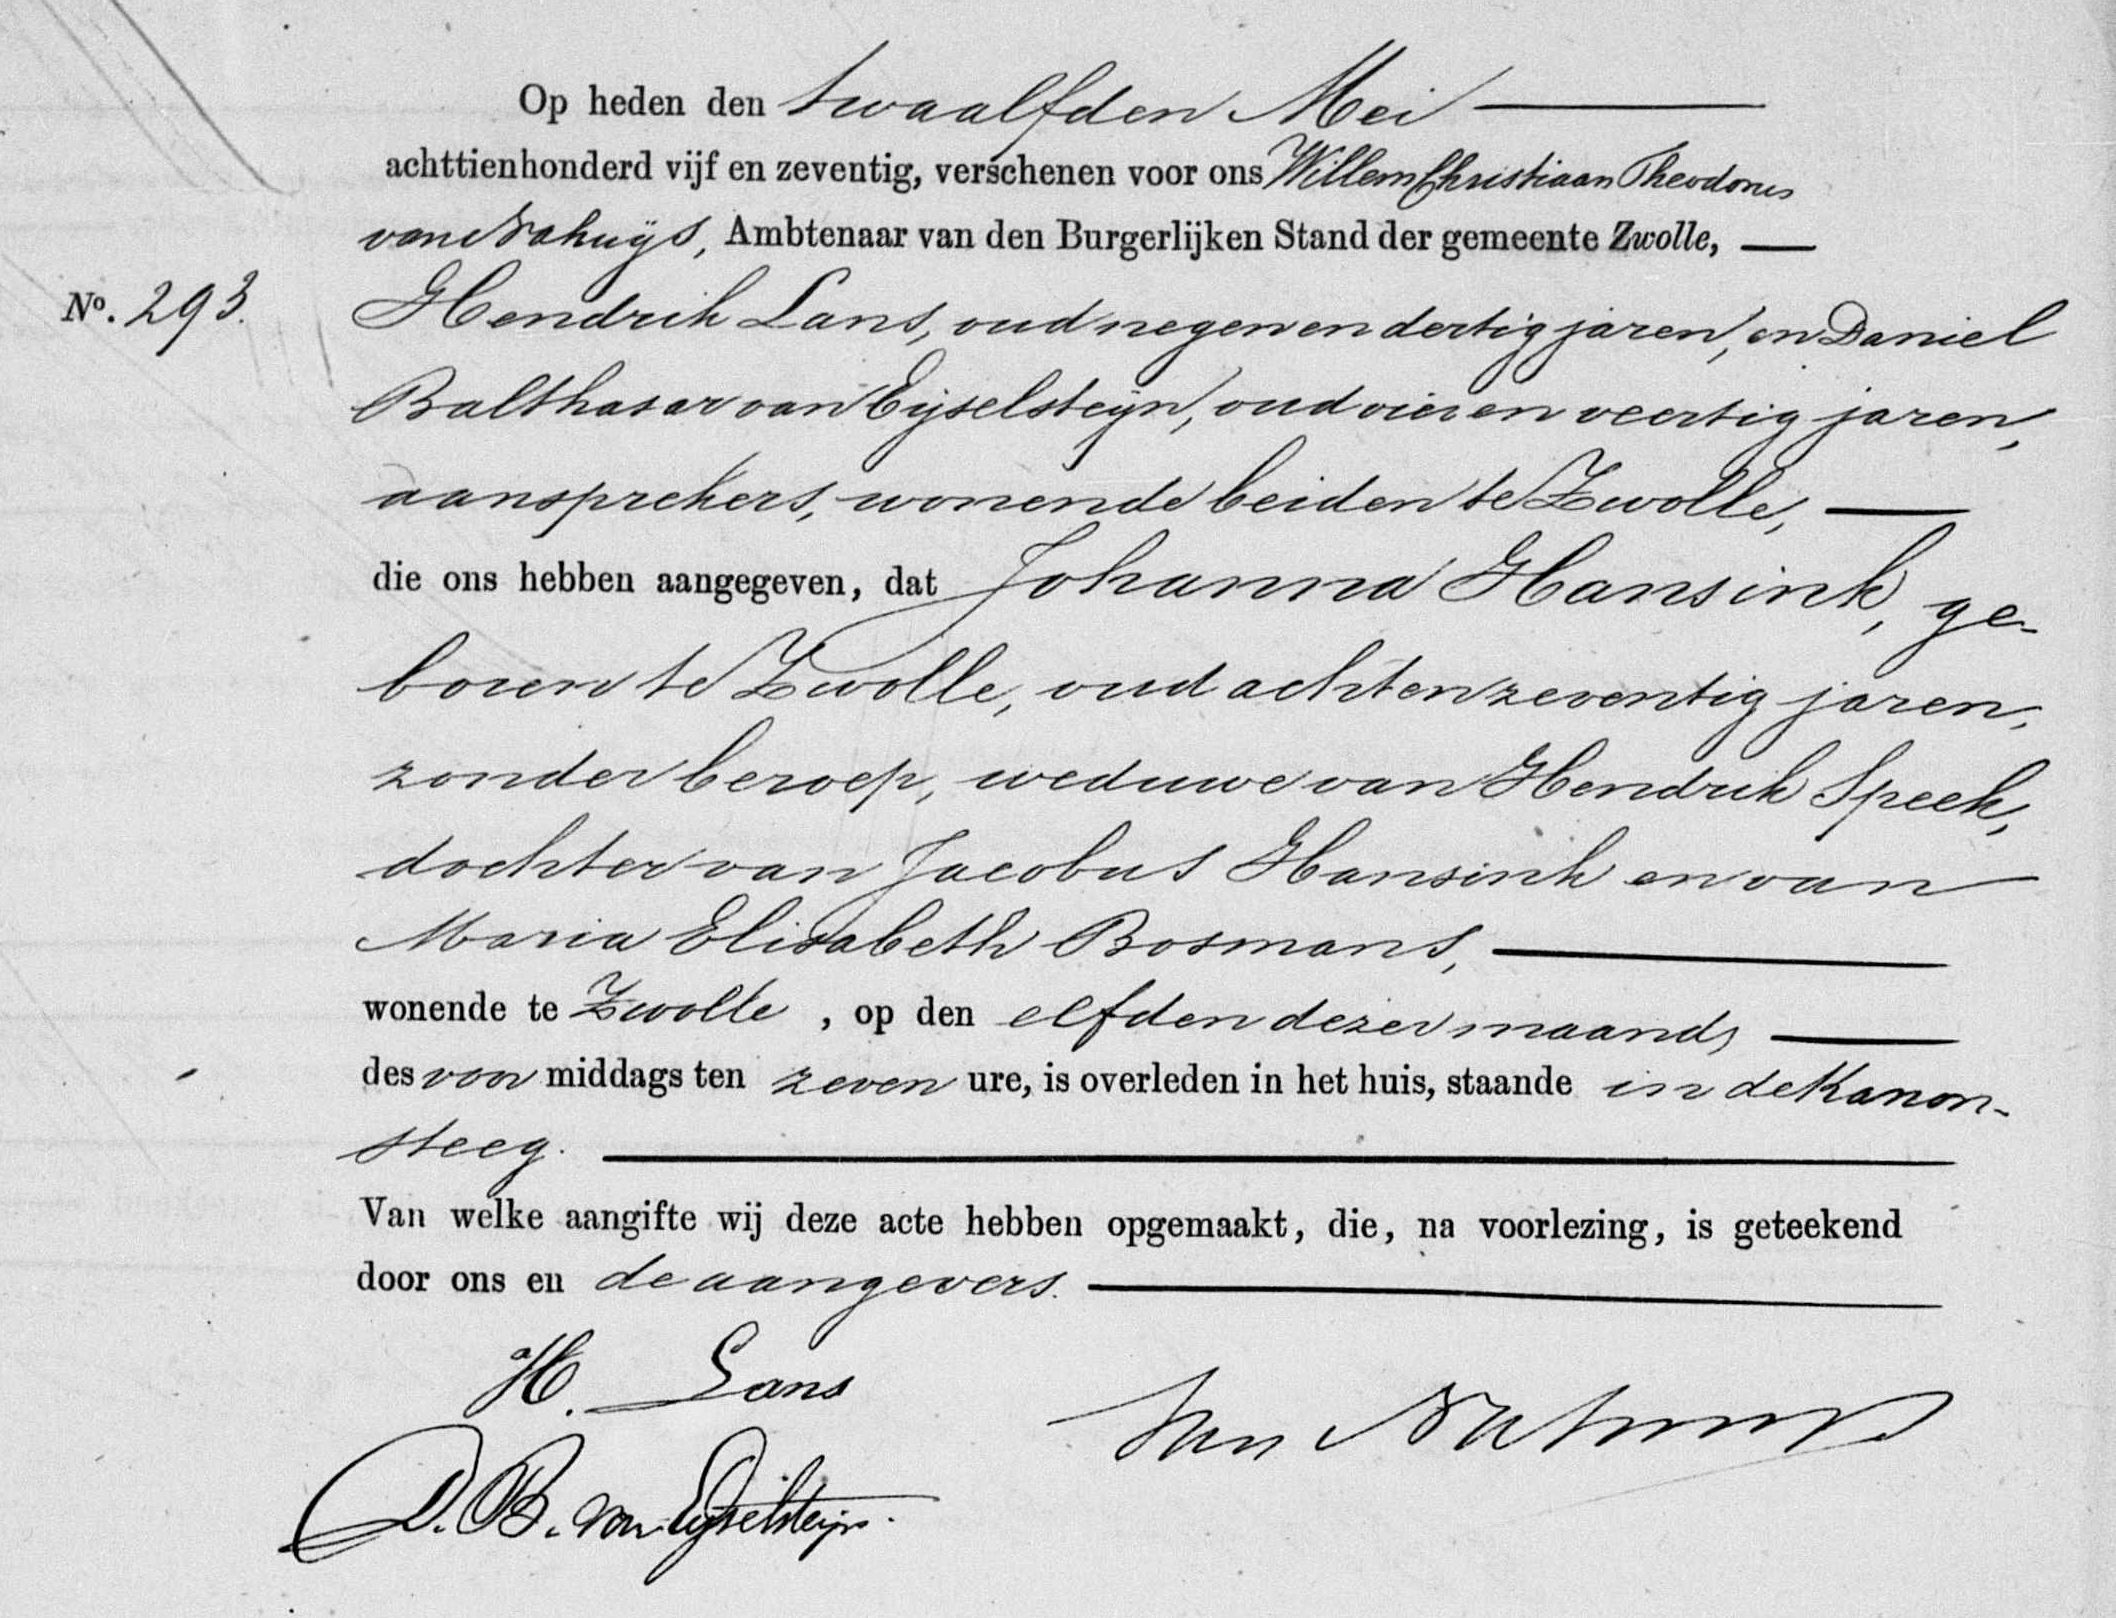 Op heden den twaalfden Mei
achttienhonderd vijf en zeventig, verschenen voor ons Willem Christiaan Theodorus
van Nahuijs, Ambtenaar van den Burgerlijken Stand der gemeente Zwolle,
No. 293.
Hendrik Lans, oud negen en dertig jaren, en Daniel
Balthasar van Eijselsteijn, oud vier en veertig jaren,
aansprekers, wonende beiden te Zwolle,
die ons hebben aangegeven, dat Johanna Hansink, ge-
boren te Zwolle, oud acht en zeventig jaren,
zonder beroep, weduwe van Hendrik Speek,
dochter van Jacobus Hansink en van
Maria Elisabeth Bosmans,
wonende te Zwolle, op den elfden dezer maand,
des voor middags ten zeven ure, is overleden in het huis, staande in de Kanon-
steeg.
Van welke aangifte wij deze acte hebben opgemaakt, die, na voorlezing, is geteekend
door ons en de aangevers.
H. Lans
Van Nahuijs
D. B. van Eijselsteijn.